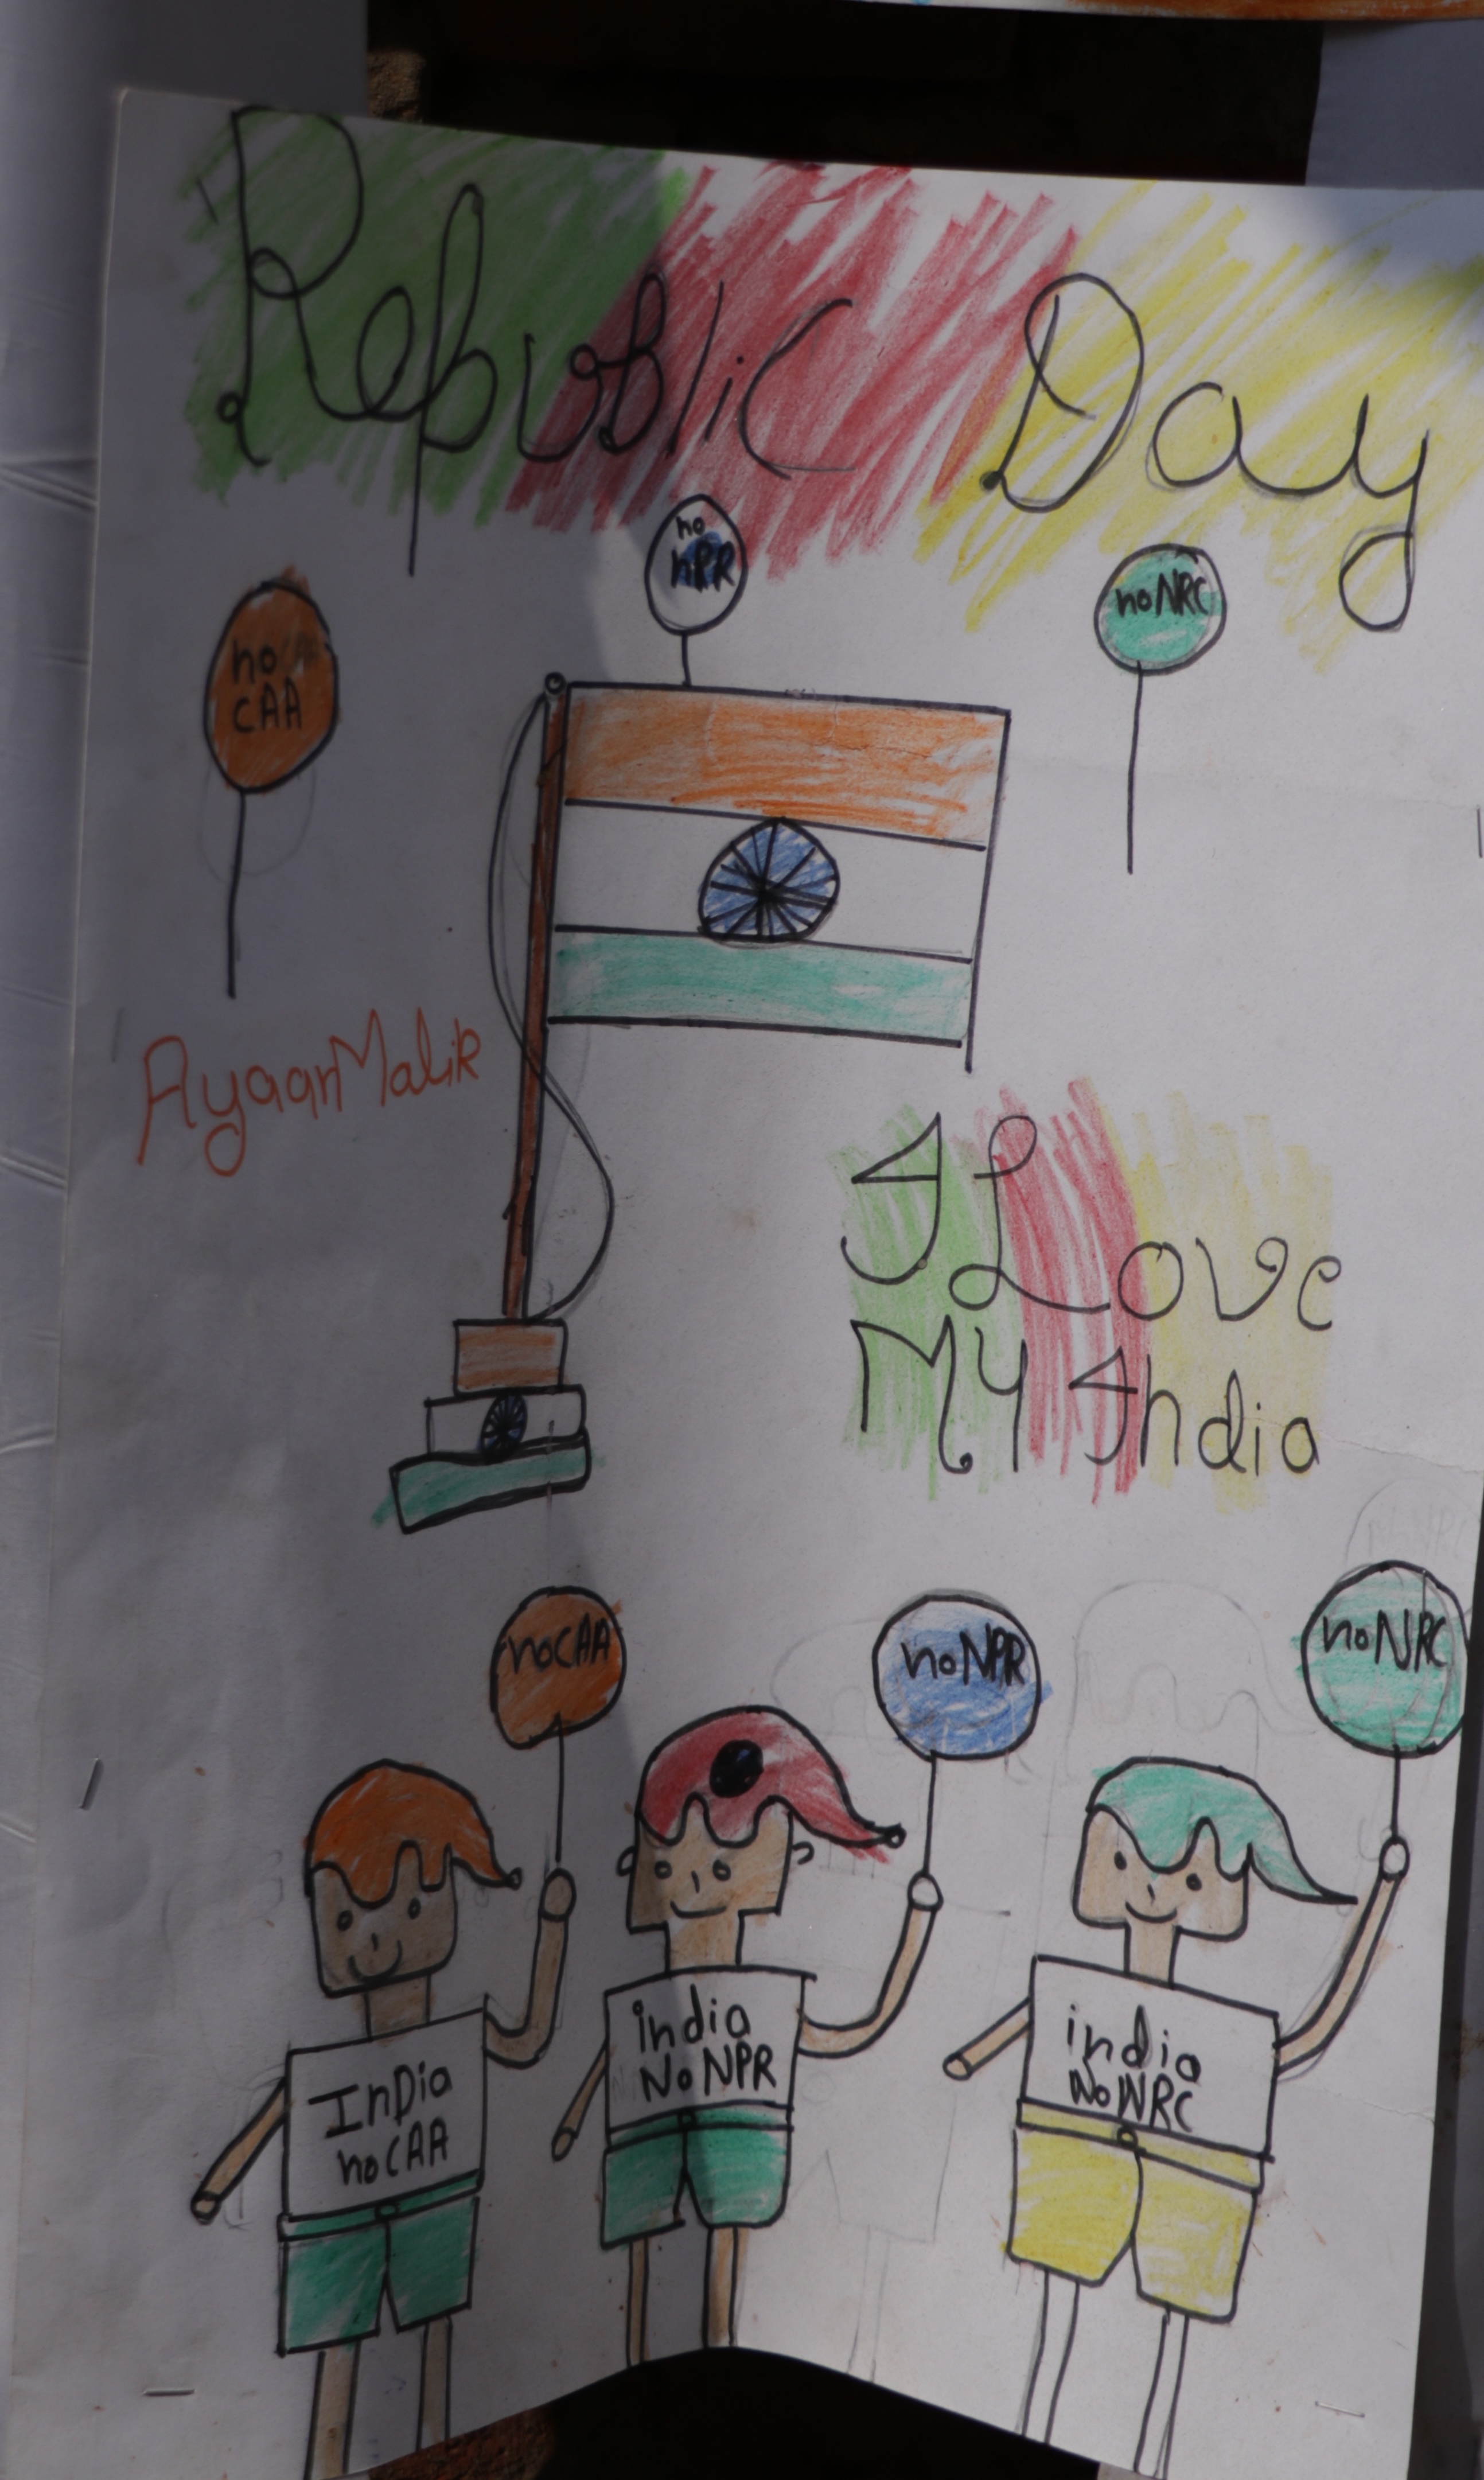 Republic Day
no
NPR
no NRC
no
CAA
Ayaan Malik
I Love
My India
no CAA
no NPR
no NRC
InDia
no CAA
india
No NPR
india
No NRC